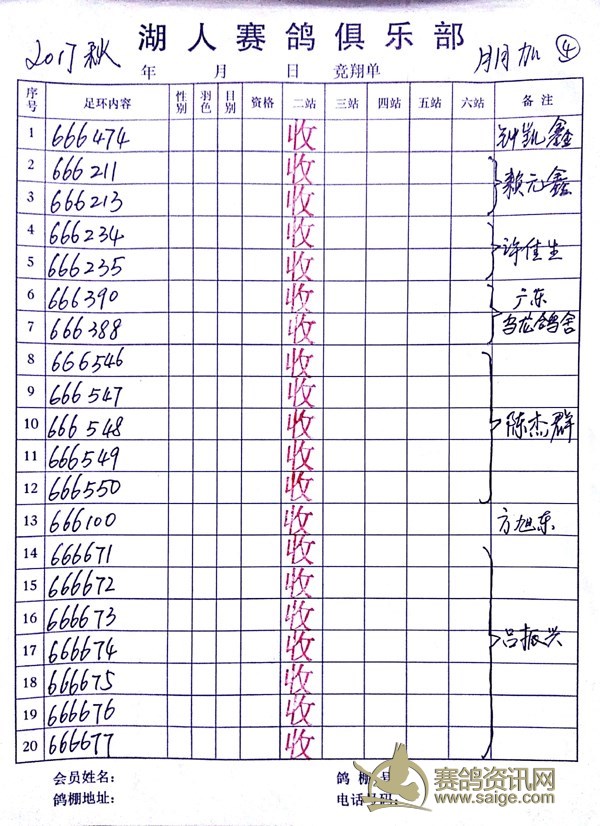 湖人赛鸽俱乐部
2017秋 年 月 日 竞翔单 月月加 ④
序号 足环内容 性别 羽色 目别 资格 二站 三站 四站 五站 六站 备注
1 666474 收 钟凯鑫
2 666211 收
3 666213 收
赖元鑫
4 666234 收
5 666235 收
许佳生
6 666390 收 广东
7 666388 收 乌龙鸽舍
8 666546 收
9 666547 收
10 666548 收 陈杰群
11 666549 收
12 666550 收
13 666100 收 方旭东
14 666671 收
15 666672 收
16 666673 收
17 666674 收 吕振兴
18 666675 收
19 666676 收
20 666677 收
会员姓名: 鸽棚号
鸽棚地址: 电话号码:
赛鸽资讯网
www.saige.com